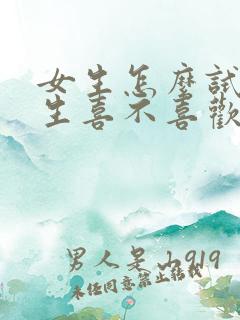 女生怎麼試
生喜不喜歡
男人是山919
未经同意禁止转载